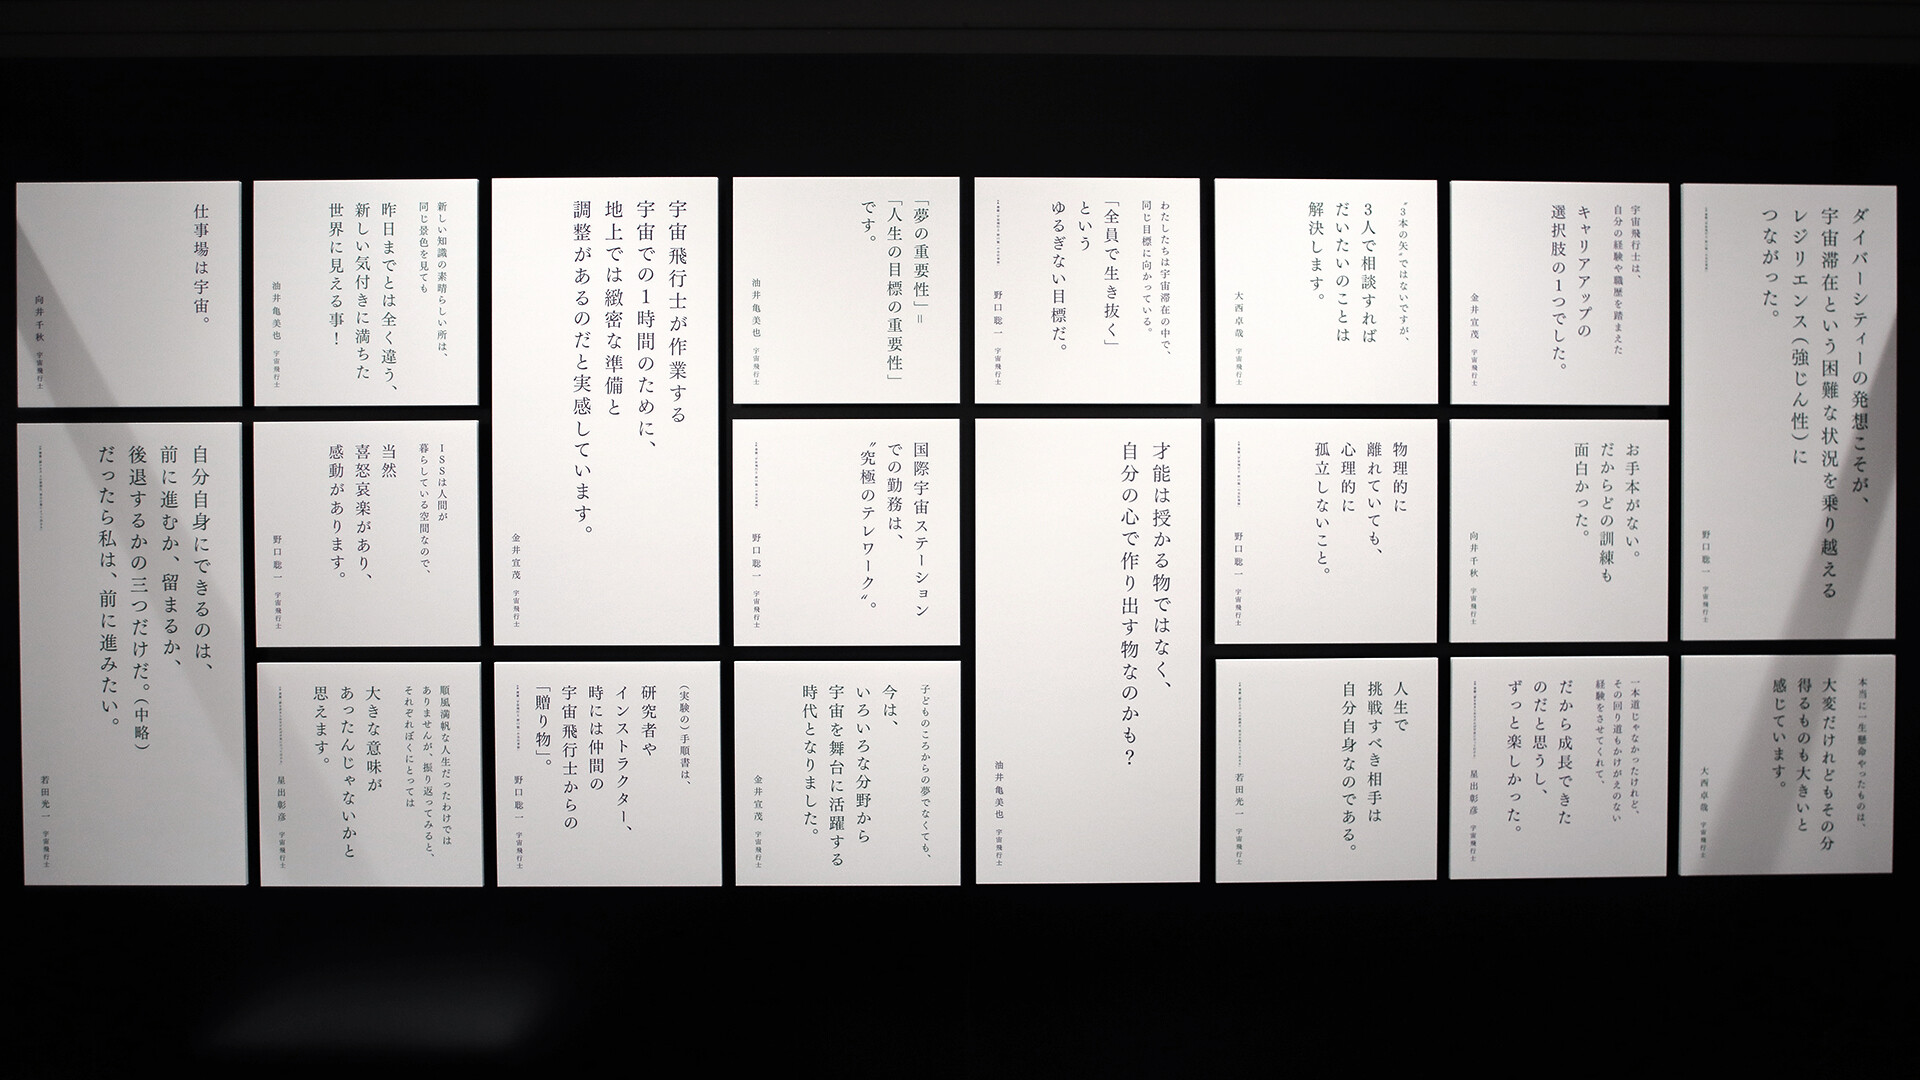 ダイバーシティーの発想こそが、
宇宙滞在という困難な状況を乗り越える
レジリエンス(強じん性)に
つながった。
野口聡一 宇宙飛行士
本当に一生懸命やったものは、
大変だけれどもその分
得るものも大きいと
感じています。
大西卓哉 宇宙飛行士
宇宙飛行士は、
自分の経験や職歴を踏まえた
キャリアアップの
選択肢の1つでした。
金井宣茂 宇宙飛行士
お手本がない。
だからどの訓練も
面白かった。
向井千秋 宇宙飛行士
一本道じゃなかったけれど、
その回り道もかけがえのない
経験をさせてくれて、
だから成長できた
のだと思うし、
ずっと楽しかった。
星出彰彦 宇宙飛行士
“3本の矢”ではないですが、
3人で相談すれば
だいたいのことは
解決します。
大西卓哉 宇宙飛行士
物理的に
離れていても、
心理的に
孤立しないこと。
野口聡一 宇宙飛行士
人生で
挑戦すべき相手は
自分自身なのである。
若田光一 宇宙飛行士
わたしたちは宇宙滞在の中で、
同じ目標に向かっている。
「全員で生き抜く」
という
ゆるぎない目標だ。
野口聡一 宇宙飛行士
才能は授かる物ではなく、
自分の心で作り出す物なのかも?
油井亀美也 宇宙飛行士
「夢の重要性」=
「人生の目標の重要性」
です。
油井亀美也 宇宙飛行士
国際宇宙ステーション
での勤務は、
“究極のテレワーク”。
野口聡一 宇宙飛行士
子どものころからの夢でなくても、
今は、
いろいろな分野から
宇宙を舞台に活躍する
時代となりました。
金井宣茂 宇宙飛行士
宇宙飛行士が作業する
宇宙での1時間のために、
地上では緻密な準備と
調整があるのだと実感しています。
金井宣茂 宇宙飛行士
(実験の)手順書は、
研究者や
インストラクター、
時には仲間の
宇宙飛行士からの
「贈り物」。
野口聡一 宇宙飛行士
新しい知識の素晴らしい所は、
同じ景色を見ても
昨日までとは全く違う、
新しい気付きに満ちた
世界に見える事!
油井亀美也 宇宙飛行士
ISSは人間が
暮らしている空間なので、
当然
喜怒哀楽があり、
感動があります。
野口聡一 宇宙飛行士
順風満帆な人生だったわけでは
ありませんが、振り返ってみると、
それぞれぼくにとっては
大きな意味が
あったんじゃないかと
思えます。
星出彰彦 宇宙飛行士
仕事場は宇宙。
向井千秋 宇宙飛行士
自分自身にできるのは、
前に進むか、留まるか、
後退するかの三つだけだ。(中略)
だったら私は、前に進みたい。
若田光一 宇宙飛行士